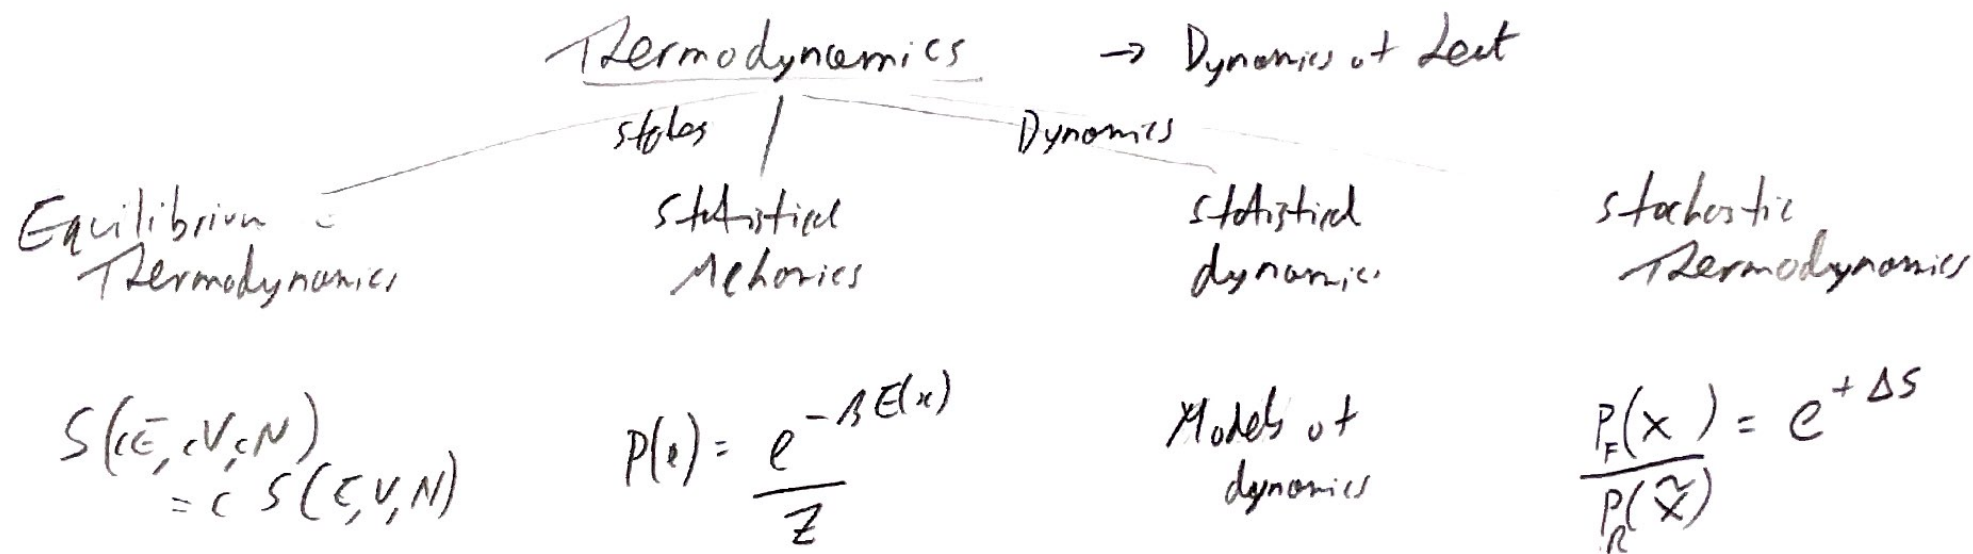 Thermodynamics → Dynamics of heat
states Dynamics
Equilibrium Thermodynamics
Statistical Mehanics
statistical dynamics
stochastic Thermodynamics
S(cE, cV, cN)
= c S(E, V, N)
P(x) = e^{-βE(x)} / Z
Models of dynamics
P_F(x) / P_R(x̃) = e^{+ΔS}